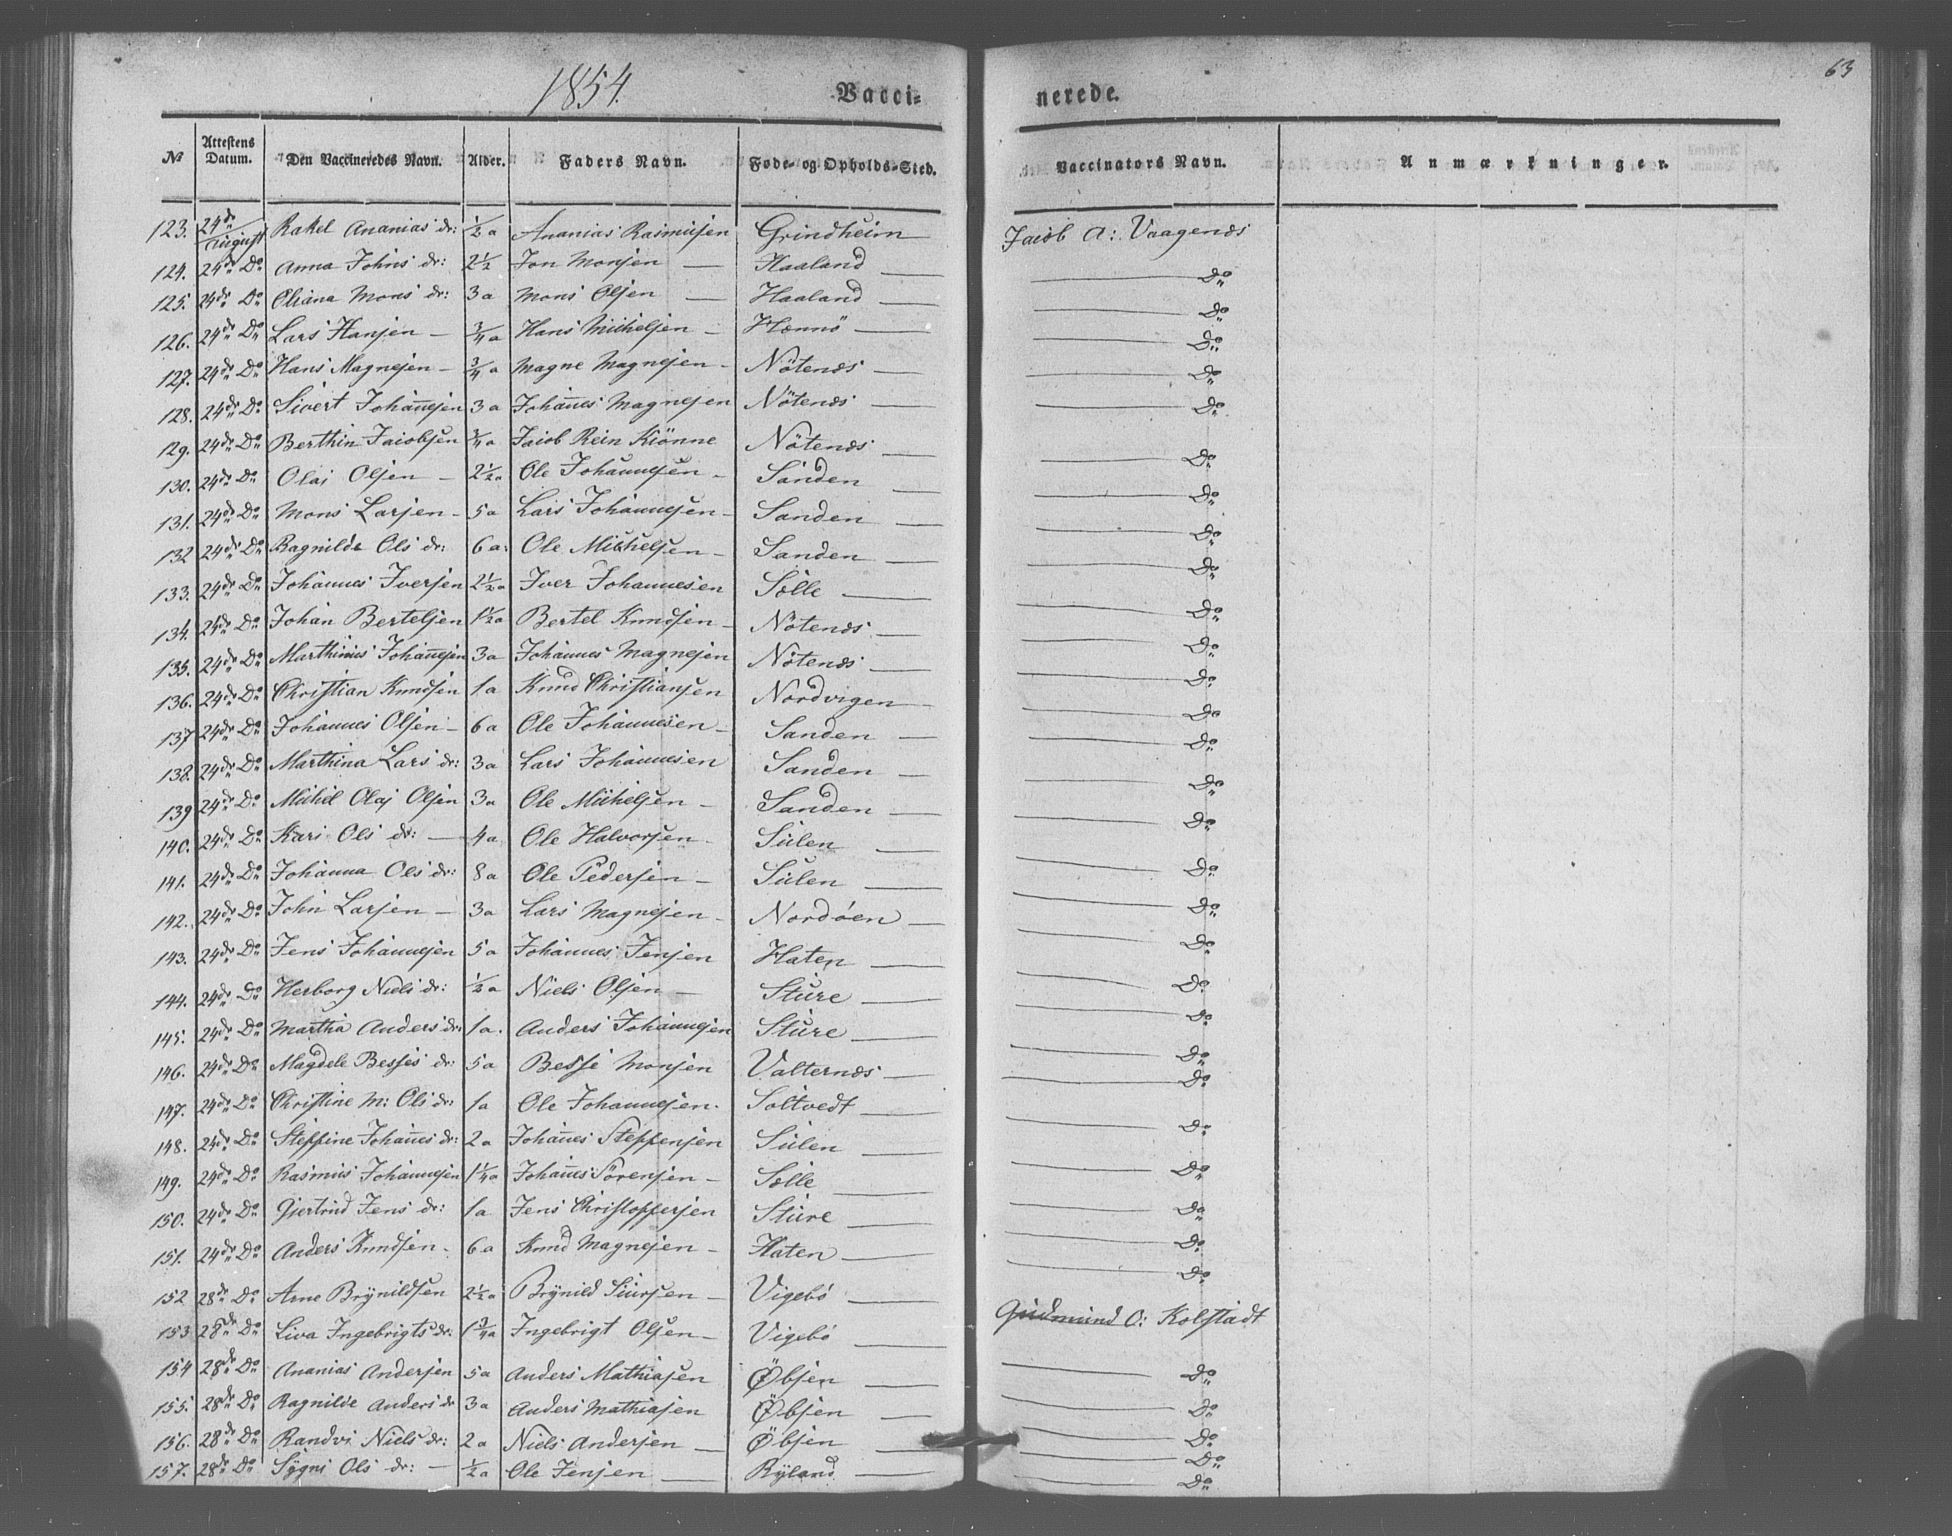 1854. Vacci- nerede. 63
No Attestens Datum. Den Vaccineredes Navn. Alder. Faders Navn. Føde- og Opholds-Sted. Vaccinators Navn. Anmærkninger.
123. 24de August Rakel Ananias dr: 1/2 a Ananias Rasmusen Grindheim Jacob A: Vaagenæs
124. 24de Do Anna Johns dr: 2 1/2 Jon Monsen — Haaland — Do
125. 24de Do Oliana Mons dr: 3 a Mons Olsen — Haaland — Do
126. 24de Do Lars Hansen — 3/4 a Hans Michelsen — Hænnö — Do
127. 24de Do Hans Magnesen — 3/4 a Magne Magnesen — Nötenæs — Do
128. 24de Do Sivert Johan̄esen 3 a Johan̄es Magnesen Nötenæs — Do
129. 24de Do Berthin Jacobsen 3/4 a Jacob Rein Kiönne Nötenæs — Do
130. 24de Do Olai Olsen — 2 1/2 a Ole Johannesen — Sanden — Do
131. 24de Do Mons Larsen — 5 a Lars Johannesen — Sanden — Do
132 24de Do Ragnilde Ols dr: 6 a: Ole Michelsen — Sanden — Do
133. 24de Do Johannes Iversen 2 1/2 a Iver Johannesen Sælle — Do
134. 24de Do Johan Bertelsen 1 1/2 a Bertel Knudsen — Nötenæs — Do
135. 24de Do Marthinus Johan̄esen 3 a Johannes Magnesen Nötenæs — Do
136. 24de Do Christian Knudsen 1 a Knud Christiansen Nordvigen — Do
137 24de Do Johannes Olsen — 6 a Ole Johannesen — Sanden — Do
138. 24de Do Marthina Lars dr: 3 a Lars Johannesen Sanden — Do
139 24de Do Michel Olaj Olsen 3 a Ole Michelsen — Sanden — Do
140. 24de Do Kari Ols dr: — 4 a Ole Halvorsen — Sulen — Do
141. 24de Do Johanna Ols dr: 8 a Ole Pedersen — Sulen — Do
142. 24de Do John Larsen — 3 a Lars Magnesen — Nordöen — Do
143. 24de Do Jens Johannesen 5 a Johannes Jensen Haten — Do
144. 24de Do Herborg Niels dr: 1/2 a Niels Olsen — Sture — Do
145. 24de Do Martha Anders dr: 1 a. Anders Johannesen Sture — Do
146. 24de Do Magdele Besses dr: 5 a Besse Monsen Valternæs — Do
147. 24de Do Christine M: Ols dr: 1 a Ole Johannesen. Soltvedt — Do
148. 24de Do Steffine Johan̄es dr: 2 a Johan̄es Steffensen Sulen — Do
149. 24de Do Rasmus Johannesen 1 1/4 a Johan̄es Sörensen — Sælle — Do
150. 24de Do Giertrud Jens dr: 1 a Jens Christoffersen Sture — Do
151. 24de Do Anders Knudsen — 6 a Knud Magnesen — Haten — Do
152 28de Do Arne Brynildsen 2 1/2 a Brynild Siursen — Vigebö — Do
153 28de Do Liva Ingebrigts dr: 1 3/4 a Ingebrigt Olsen — Vigebö — Gudmund O: Kolstadt
154 28de Do Ananias Andersen 5 a Anders Mathiasen Øbsen — Do
155. 28de Do Ragnilde Anders dr 3 a Anders Mathiasen Øbsen — Do
156. 28de Do Randvi Niels dr: 2 a Niels Andersen — Øbsen — Do
157. 28de Do Sygni Ols dr: — 1/2 a Ole Jensen — Ryland — Do
Do